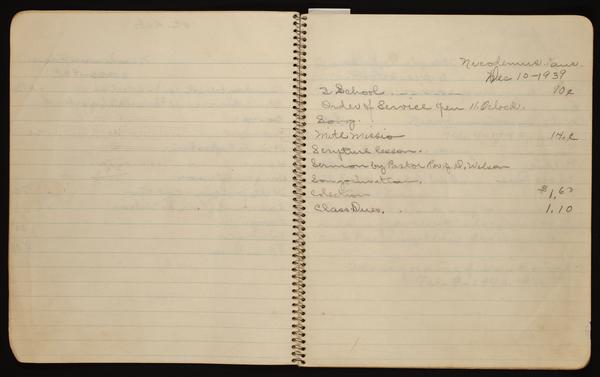 Nicodemus, Kans.
Dec 10-1939
S School. 10¢
Order of Service open 11 Oclock.
Song.
Mite Missio 14.¢
Scripture lesson.
Sermon by Pastor Rev. J. D. Wilson
Song invitation.
Colection $1.62
Class Dues. 1.10